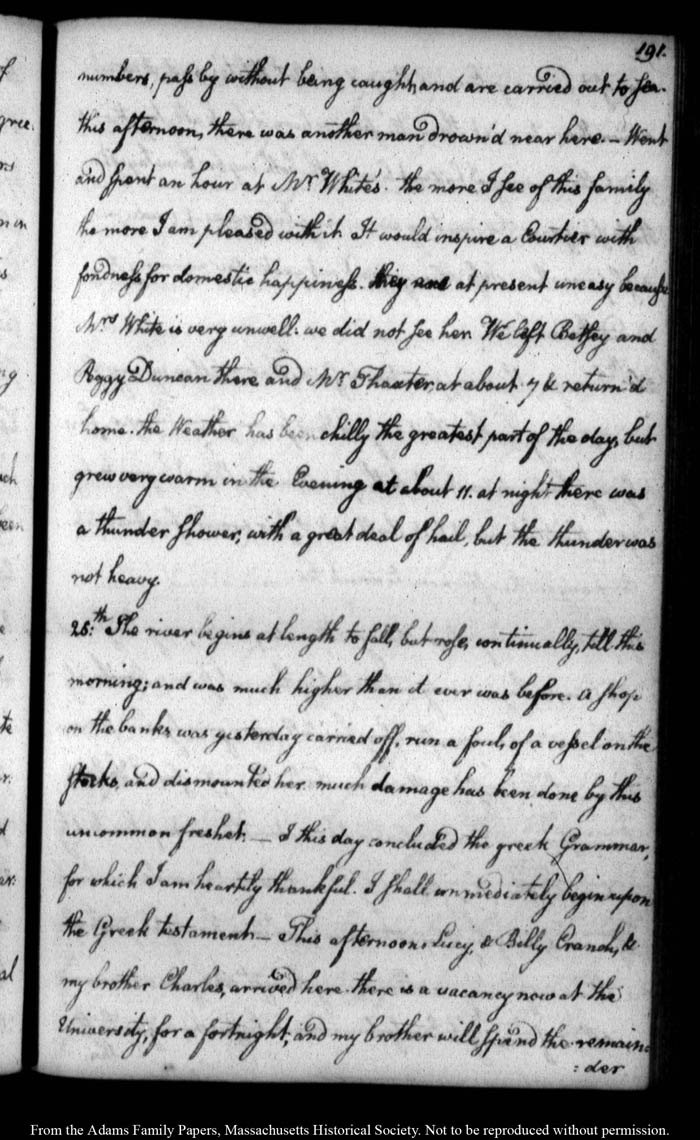 191.
numbers, pass by without being caught, and are carried out to sea.
this afternoon, there was another man drown'd near here. — Went
and spent an hour at Mr. White's. the more I see of this family
the more I am pleased with it. It would inspire a Courtier with
fondness for domestic happiness. they are at present uneasy because
Mrs. White is very unwell. we did not see her. We left Betsey and
Peggy Duncan there and Mr. Thaxter, at about 7 & return'd
home. the Weather has been chilly the greatest part of the day, but
grew very warm in the Evening at about 11. at night there was
a thunder shower, with a great deal of hail, but the thunder was
not heavy.
25th. The river begins at length to fall, but rose, continually, till this
morning; and was much higher than it ever was before. a shop
on the banks was yesterday carried off, run a foul, of a vessel on the
stocks, and dismounted her. much damage has been done by this
uncommon freshet. — I this day concluded the greek Grammar,
for which I am heartily thankful. I shall immediately begin upon
the Greek testament. — This afternoon, Lucy, & Billy Cranch, &
my brother Charles, arrived here. there is a vacancy now at the
University, for a fortnight, and my brother will spend the remain:
: der
gree.
ng
een
te
al
From the Adams Family Papers, Massachusetts Historical Society. Not to be reproduced without permission.